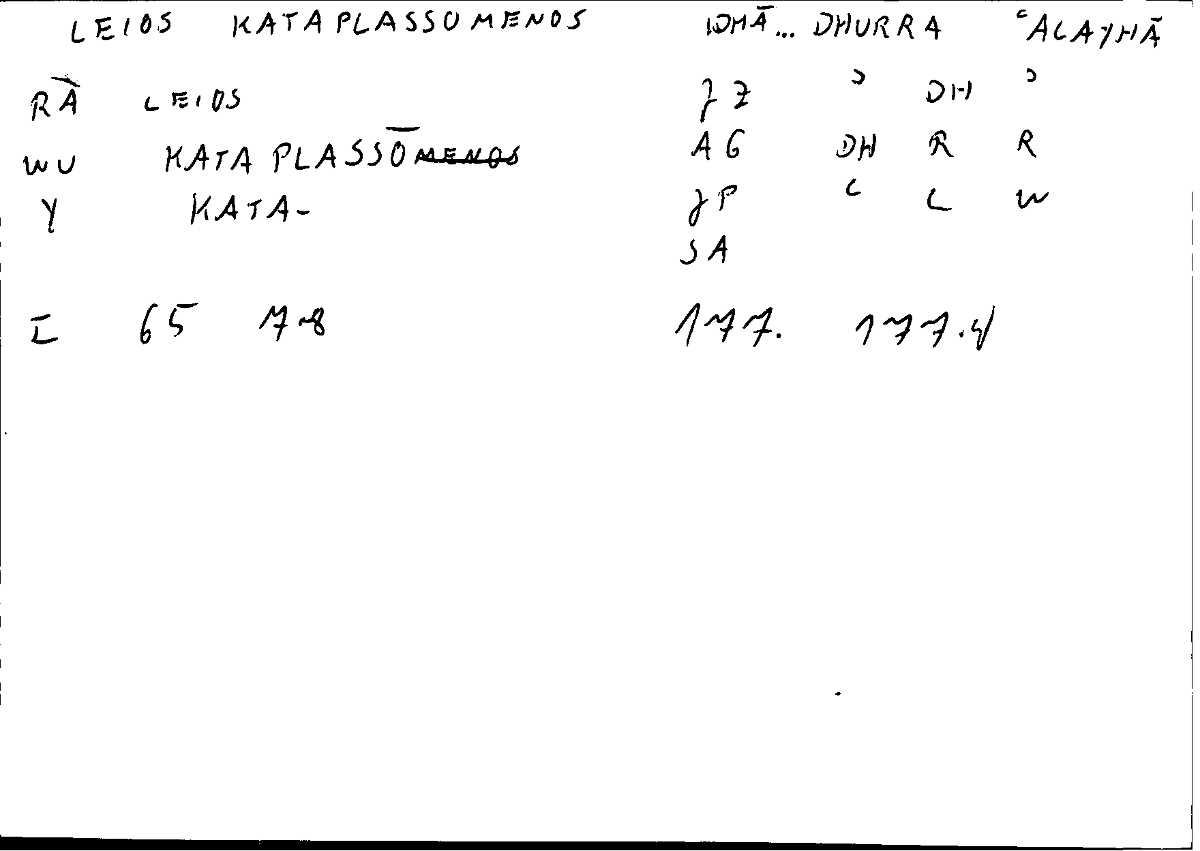 LEIOS KATAPLASSOMENOS IDHĀ... DHURRA ʿALAYHĀ
RĀ LEIOS JZ ʾ DH ʾ
WU KATAPLASSŌMENOS AG DH R R
Y KATA- JP ʿ L W
SA
I 65 7-8 177. 177.4